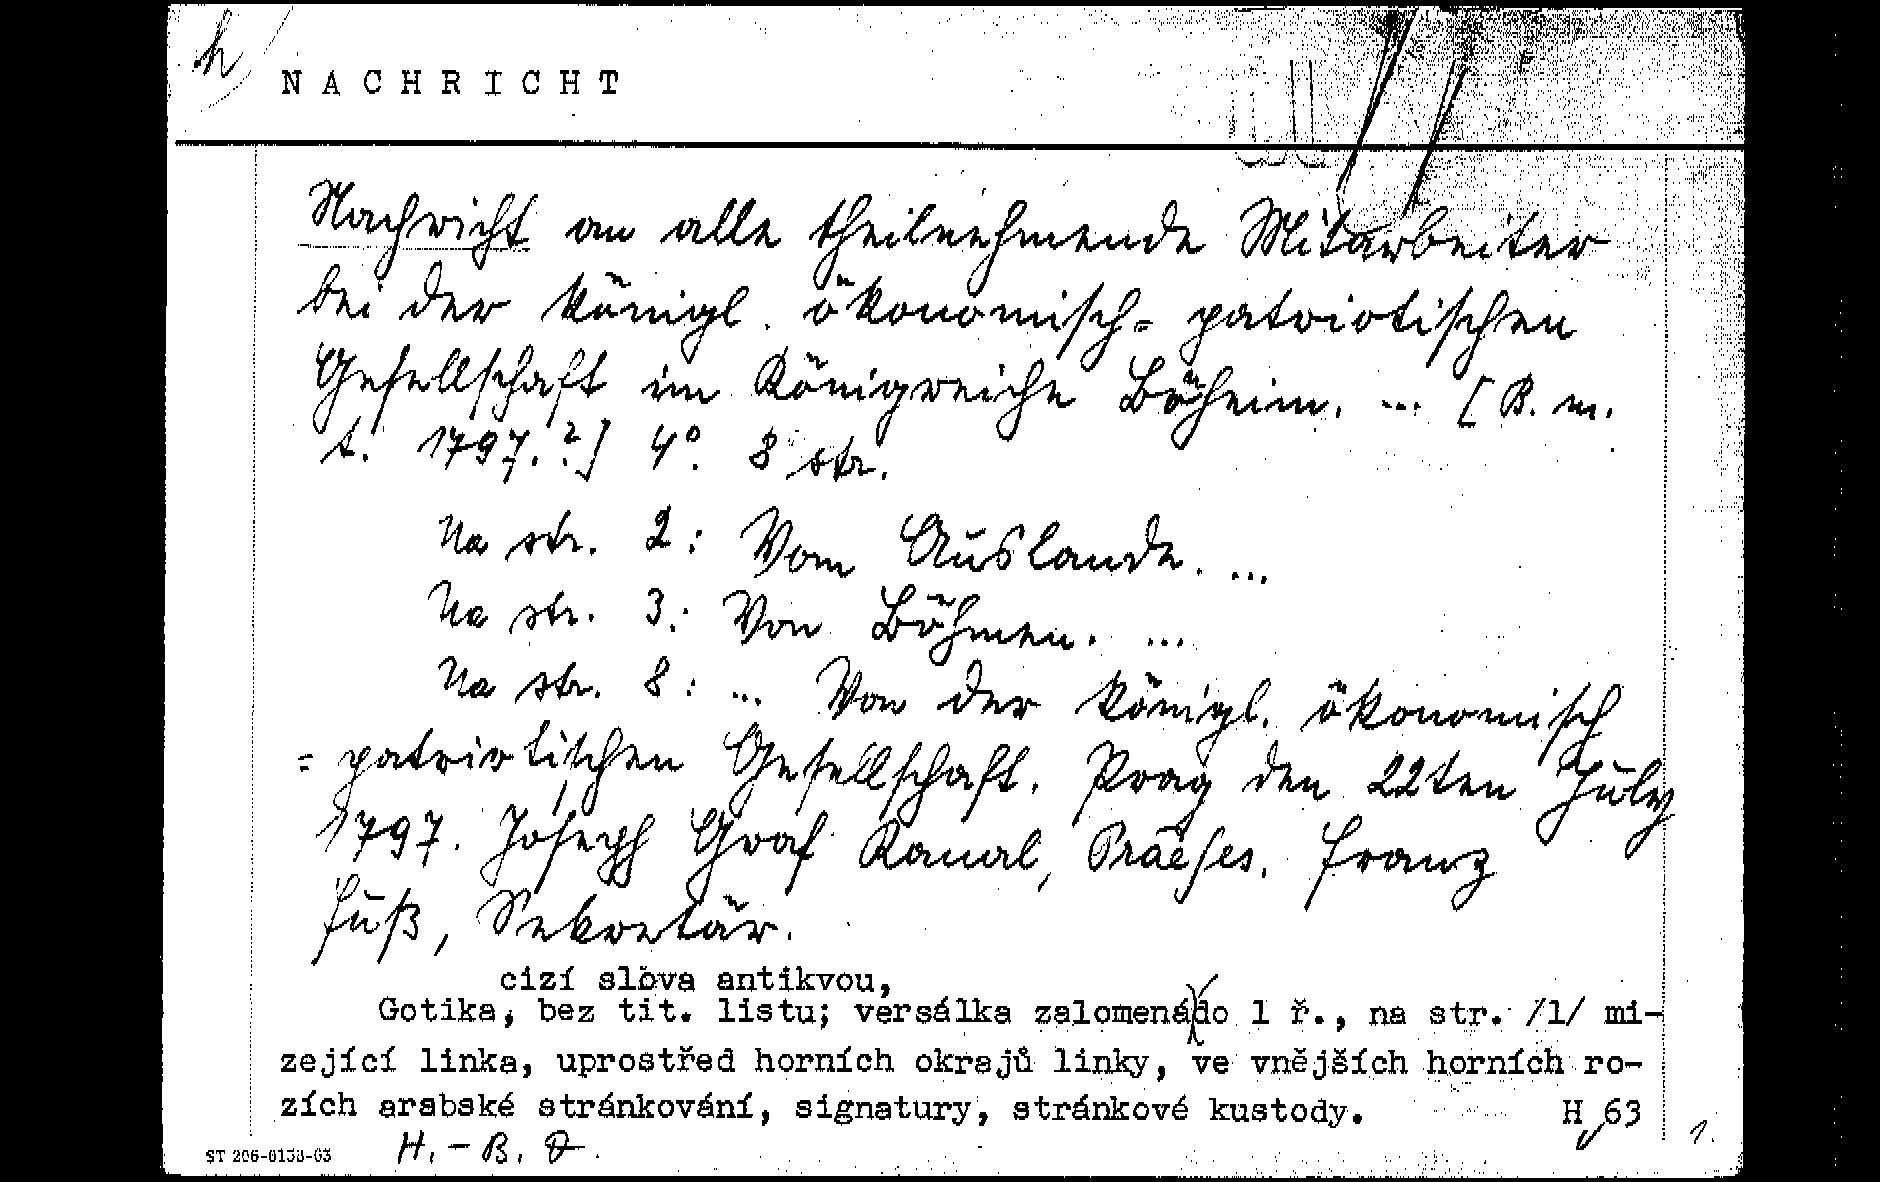 h
NACHRICHT
Nachricht an alle theilnehmende Mitarbeiter
bei der königl. ökonomisch= patriotischen
Gesellschaft im Königreiche Böheim. ... [B. m.
t. 1797.?] 4°. 8 str.
Na str. 2: Vom Auslande. ...
Na str. 3: Von Böhmen. ...
Na str. 8: ... Von der königl. ökonomisch
= patriotischen Gesellschaft. Prag den 22ten July
1797. Joseph Graf Kanal, Präeses. Franz
Fuß, Sekretär.
cizí slova antikvou,
Gotika, bez tit. listu; versálka zalomená do 1 ř., na str. /1/ mi-
zející linka, uprostřed horních okrajů linky, ve vnějších horních ro-
zích arabské stránkování, signatury, stránkové kustody. H 63
1.
ST 206-0133-63 H. - B.